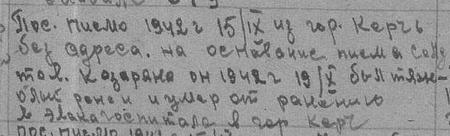 Пос. писмо 1942 г 15/IX из гор. Керчь
без адреса. на основание писма сосу
тов. Казаряна он 1942 г 19/X был тяже-
олый ранен и умер от ранению
в эвакагоспитала в гор Керч